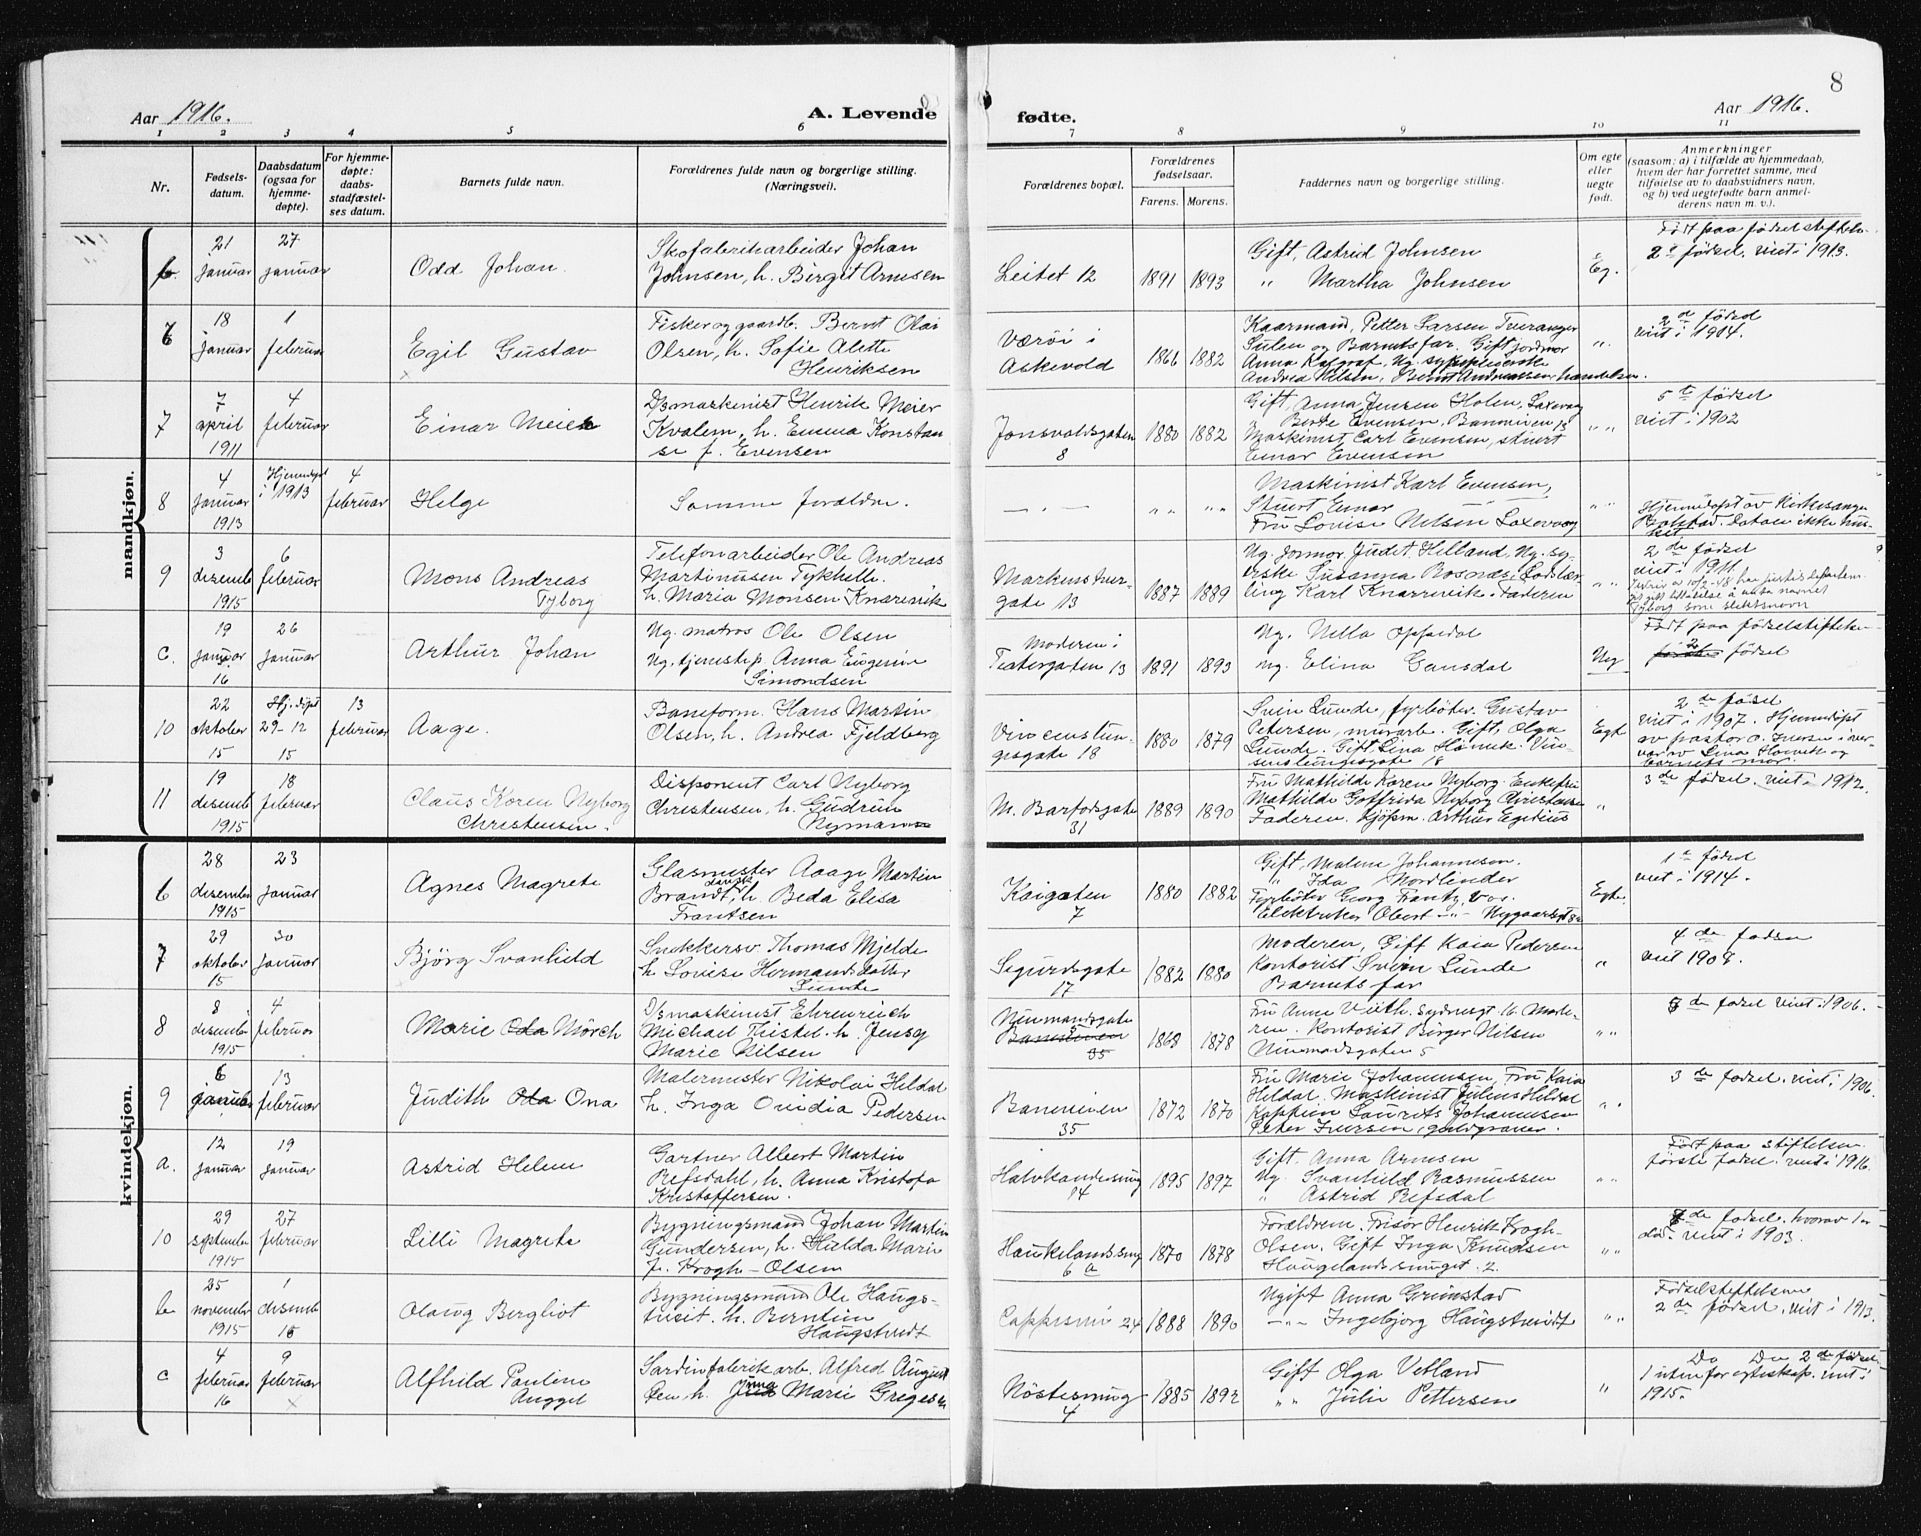 8
Aar 1916. A. Levende fødte. Aar 1916.
1 2 3 4 5 6 7 8 9 10 11
Nr.
Fødsels-
datum.
Daabsdatum
(ogsaa for
hjemme-
døpte).
For hjemme-
døpte:
daabs-
stadfæstel-
ses datum.
Barnets fulde navn.
Forældrenes fulde navn og borgerlige stilling.
(Næringsvei).
Forældrenes bopæl.
Forældrenes
fødselsaar.
Farens. Morens.
Faddernes navn og borgerlige stilling.
Om egte
eller
uegte
født.
Anmerkninger
(saasom: a) i tilfælde av hjemmedaab,
hvem der har forrettet samme, med
tilføielse av to daabsvidners navn,
og b) ved uegtefødte barn anmel-
derens navn m. v.).
mandkjøn.
b.
21
januar
27
januar
Odd Johan.
Skofabrikarbeider Johan
Johnsen, h. Birgit Arnesen
Leitet 12
1891 1893
Gift, Astrid Johnsen
" Martha Johnsen
Eg.
Født paa fødselsstiftelsen
2de fødsel. viet i 1913.
6
18
januar
1
februar
Egil Gustav
Fisker og gaardb. Bernt Olai
Olsen, h. Sofie Alette
Henriksen
Værøi i
Askevold
1866 1882
Kaarmand, Petter Larsen
Sulen og Barnets far. Gift jordmor
Andrea Nilsen, Bernt Andreassen, handelsm.
".
2de fødsel
viet i 1904.
7
7
april
1911
4
februar
Einar Meier
D/smaskinist Henrik Meier
Kvalem, h. Emma Konstan
se f. Evensen
Jonsvoldsgaten
8
1880 1882
Gift, Anna Jensen Holen, Laxevaag
Berte Evensen, Banneveien 13
Maskinist Carl Evensen, stuert
Einar Evensen
" "
5te fødsel
viet i 1902
8
4
januar
1913
Hjemmedøpt
i 1913
4
februar
Helge
Samme forældre.
— " —
" " " "
Maskinist Karl Evensen,
Stuert Einar
Fru Lovise Nilsen Laxevaag
" "
Hjemmedøpt av Kirkesanger
Datoen ikke hus-
ket
9
3
desember
1915
6
februar
Mons Andreas
Tyborg
Telefonarbeider Ole Andreas
Martinusen Tykhelle.
h. Maria Monsen Knarrevik
Markenshur-
gate 13
1887 1889
Ug. Jormor Judet Helland, Ug. sy-
erske Susanna Rosnæs
ling Karl Knarrevik. Faderen
" "
2de fødsel
viet i 1911
Tyborg som slektsnavn
c.
19
januar
16
26
januar
Arthur Johan
Ug. matros Ole Olsen
Ug. tjenestep. Anna Eugenie
Simondsen
Moderen i
Teatergaten 13
1891 1893
Ug. Nilla Oppedal
Ug. Elina Gansdal
Ug
Født paa fødselsstiftelsen
2 fødsel
10
22
oktober
15
Hj. døpt
29-12
15
13
februar
Aage.
Baneform. Hans Martin
Olsen, h. Andrea Fjeldberg
Vincenslun-
gesgate 18
1880 1879
Svein Lunde, fyrbøter. Gustav
Petersen, murarb. Gift, Olga
Lunde. Gift Lina Hønvik. Vin-
senslungesgate 18
Egt
2de føsel
viet i 1907. Hjemmedøpt
av pastor O. Iversen i over-
vær av Lina Hønvik og
barnets mor.
11
19
desemb
1915
18
februar
Claus Koren Nyborg
Christensen.
Disponent Carl Nyborg
Christensen, h. Gudrun
Nymann
M. Barfodsgate
31
1889 1890
Fru Mathilde Koren Nyborg. Enkefru
Mathilde Gotfrida Nyborg Christensen
Faderen. Kjøpm. Arthur Egidius
"
3de fødsel. viet i 1912.
kvindekjøn.
6
28
desember
1915
23
januar
Agnes Magrete
Glasmester Aaage Martin
Brandt, dansk h. Beda Elisa
Frantsen
Kaigaten
7
1880 1882
Gift, Malene Johannesen.
" Ida Nordlinder
Fyrbøter Georg Frantz, Vos.
Elektriker Obert —"— Nygaardsgt 82
Egte.
1ste fødsel
viet i 1914.
7
29
oktober
15
30
januar
Bjørg Svanhild
Snekkersv Thomas Mjelde
h Lovise Hermandsdatter
Lunde
Sigurdsgate
17
1882 1880
Moderen, Gift Kaia Pedersen
Kontorist Svein Lunde
Barnets far
"
4de fødsel
viet 1908.
8
8
desember
1915
4
februar
Marie Oda Mörch
D/smaskinist Ehrenreich
Michael Thistel. h. Jensy
Marie Nilsen
Neumandsgate
5
Banneveien
35
1868 1878
Fru Anne Vieth. Sydnesgt 16. Mode-
ren. Kontorist Børger Nilsen
Neumandsgaten 5
" "
de fødsel viet i 1906.
9
6
januar
13
februar
Judith Oda Ona
Malermester Nikolai Heldal
h. Inga Ovidia Pedersen
Banneveien
35
1872 1870
Fru Marie Johannesen, Fru Kaia
Heldal. Maskinist Julius Heldal
Kaptein Laurits Johannesen
Peter Iversen, guldgraver.
" .
3de fødsel. viet i 1906.
a.
12
januar
19
januar
Astrid Helene
Gartner Albert Martin
Refsdahl, h. Anna Kristofa
Kristoffersen.
Halvkandesmug
14
1895 1897
Gift. Anna Arnesen
Ug. Svanhild Rasmussen
" Astrid Refsdal
" "
Født paa stiftelsen
første fødsel. viet i 1916.
10
29
september
1915
27
februar
Lilli Magrete
Bygningsmand Johan Martin
Gundersen, h. Hulda Marie
f. Krogh-Olsen
Haukelandssmug
6 a
1870 1878
Forældrene. Frisør Henrik Krogh-
Olsen. Gift Inga Knudsen
Haugelandssmuget. 2.
" "
de fødsel. hvorav 1
død. viet i 1903.
b
25
november
1915
1
desember
15
Olaug Bergliot
Bygningsmand Ole Haug-
tveit. h. Berntine
Haugstvedt
Cappesmu 24
1888 1890
Ugift Anna Grimstad
—"— Ingebjorg Haugstvedt
" "
Fødselsstiftelsen
2de fødsel. viet i 1913.
c
4
februar
16
9
februar
Alfhild Pauline
Angget
Sardinfabrikarb. Alfred August
sen h. Jenna Marie Gregesen
Nöstesmug
4
1885 1892
Gift Olga Vetland
" " Julie Pettersen
"
Do Do 2de fødsel
1 utenfor egteskap. viet i
1915.